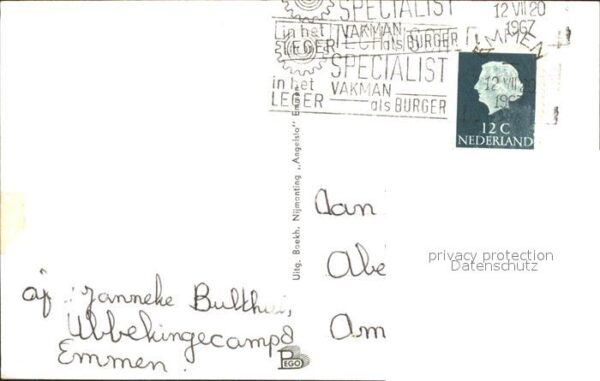 SPECIALIST
12 VII 20
1967
EMMEN
in het
LEGER
VAKMAN
als BURGER
SPECIALIST
in het
LEGER
VAKMAN
als BURGER
12 VII
12 C
NEDERLAND
Uitg. Boekh. Nijmanting „Angelslo" Emmen
Aan
Abe
Am
privacy protection
Datenschutz
af: Janneke Bulthuis,
Ubbekingecamp 8
Emmen.
EGO